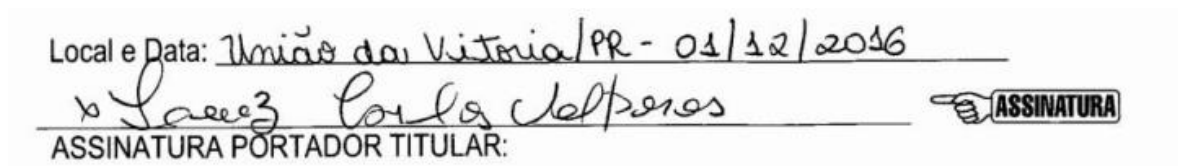 Local e Data: União da Vitoria/PR - 01/12/2016
x Carlos
ASSINATURA
ASSINATURA PORTADOR TITULAR: